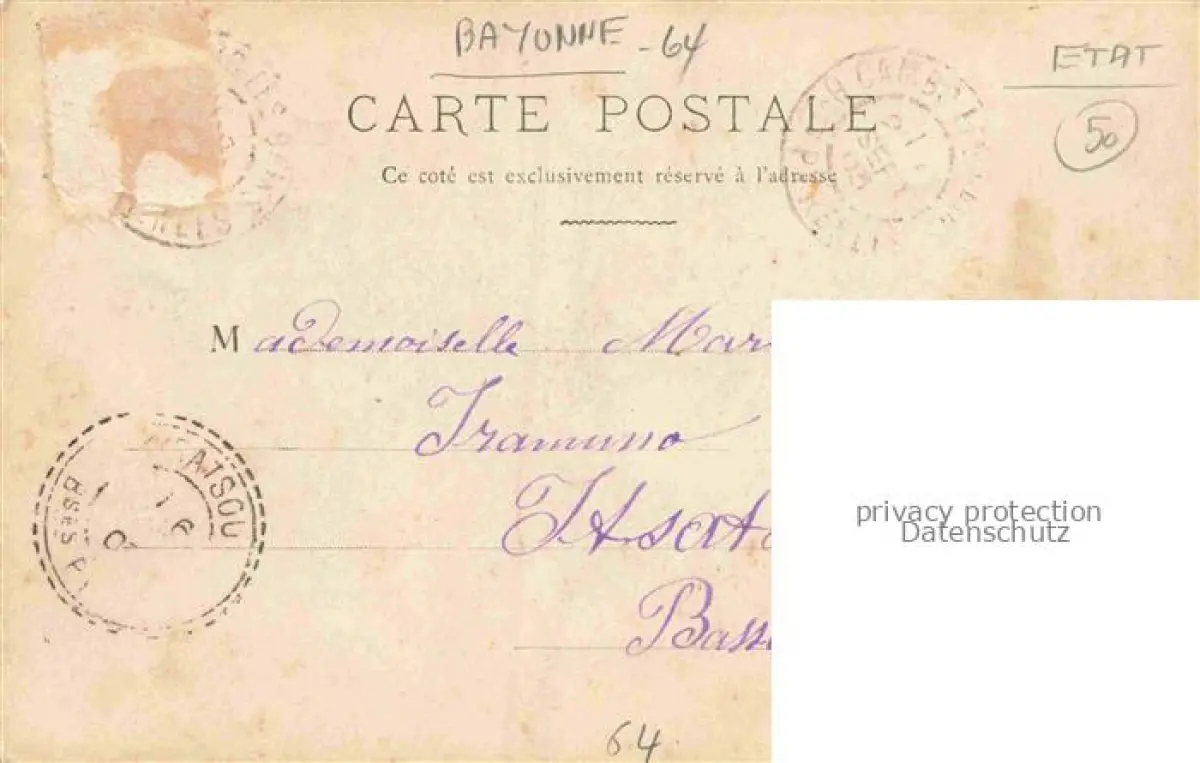 BAYONNE - 64
ETAT
50
CARTE POSTALE
Ce coté est exclusivement réservé à l'adresse
Mademoiselle Mar
Iramuno
Itsat
Bass
ATSOU
Bses P
64
privacy protection
Datenschutz